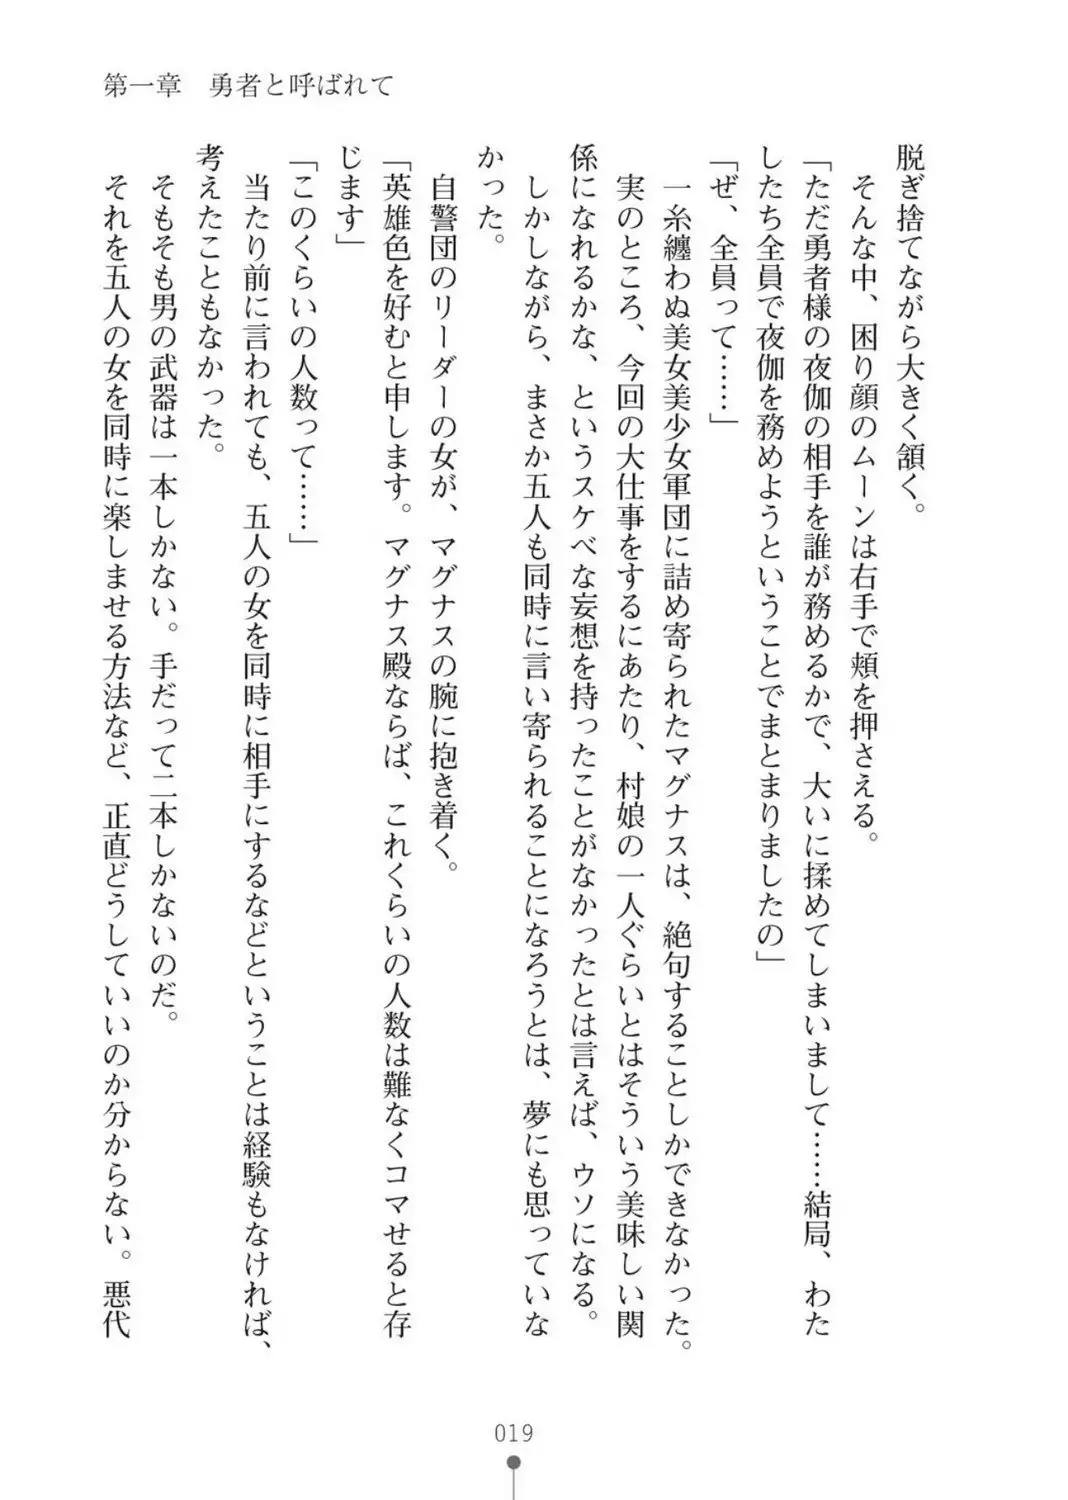 第一章　勇者と呼ばれて
脱ぎ捨てながら大きく頷く。
　そんな中、困り顔のムーンは右手で頬を押さえる。
「ただ勇者様の夜伽の相手を誰が務めるかで、大いに揉めてしまいまして……結局、わた
したち全員で夜伽を務めようということでまとまりましたの」
「ぜ、全員って……」
　一糸纏わぬ美女美少女軍団に詰め寄られたマグナスは、絶句することしかできなかった。
　実のところ、今回の大仕事をするにあたり、村娘の一人ぐらいとはそういう美味しい関
係になれるかな、というスケベな妄想を持ったことがなかったとは言えば、ウソになる。
　しかしながら、まさか五人も同時に言い寄られることになろうとは、夢にも思っていな
かった。
　自警団のリーダーの女が、マグナスの腕に抱き着く。
「英雄色を好むと申します。マグナス殿ならば、これくらいの人数は難なくコマせると存
じます」
「このくらいの人数って……」
　当たり前に言われても、五人の女を同時に相手にするなどということは経験もなければ、
考えたこともなかった。
　そもそも男の武器は一本しかない。手だって二本しかないのだ。
　それを五人の女を同時に楽しませる方法など、正直どうしていいのか分からない。悪代
019